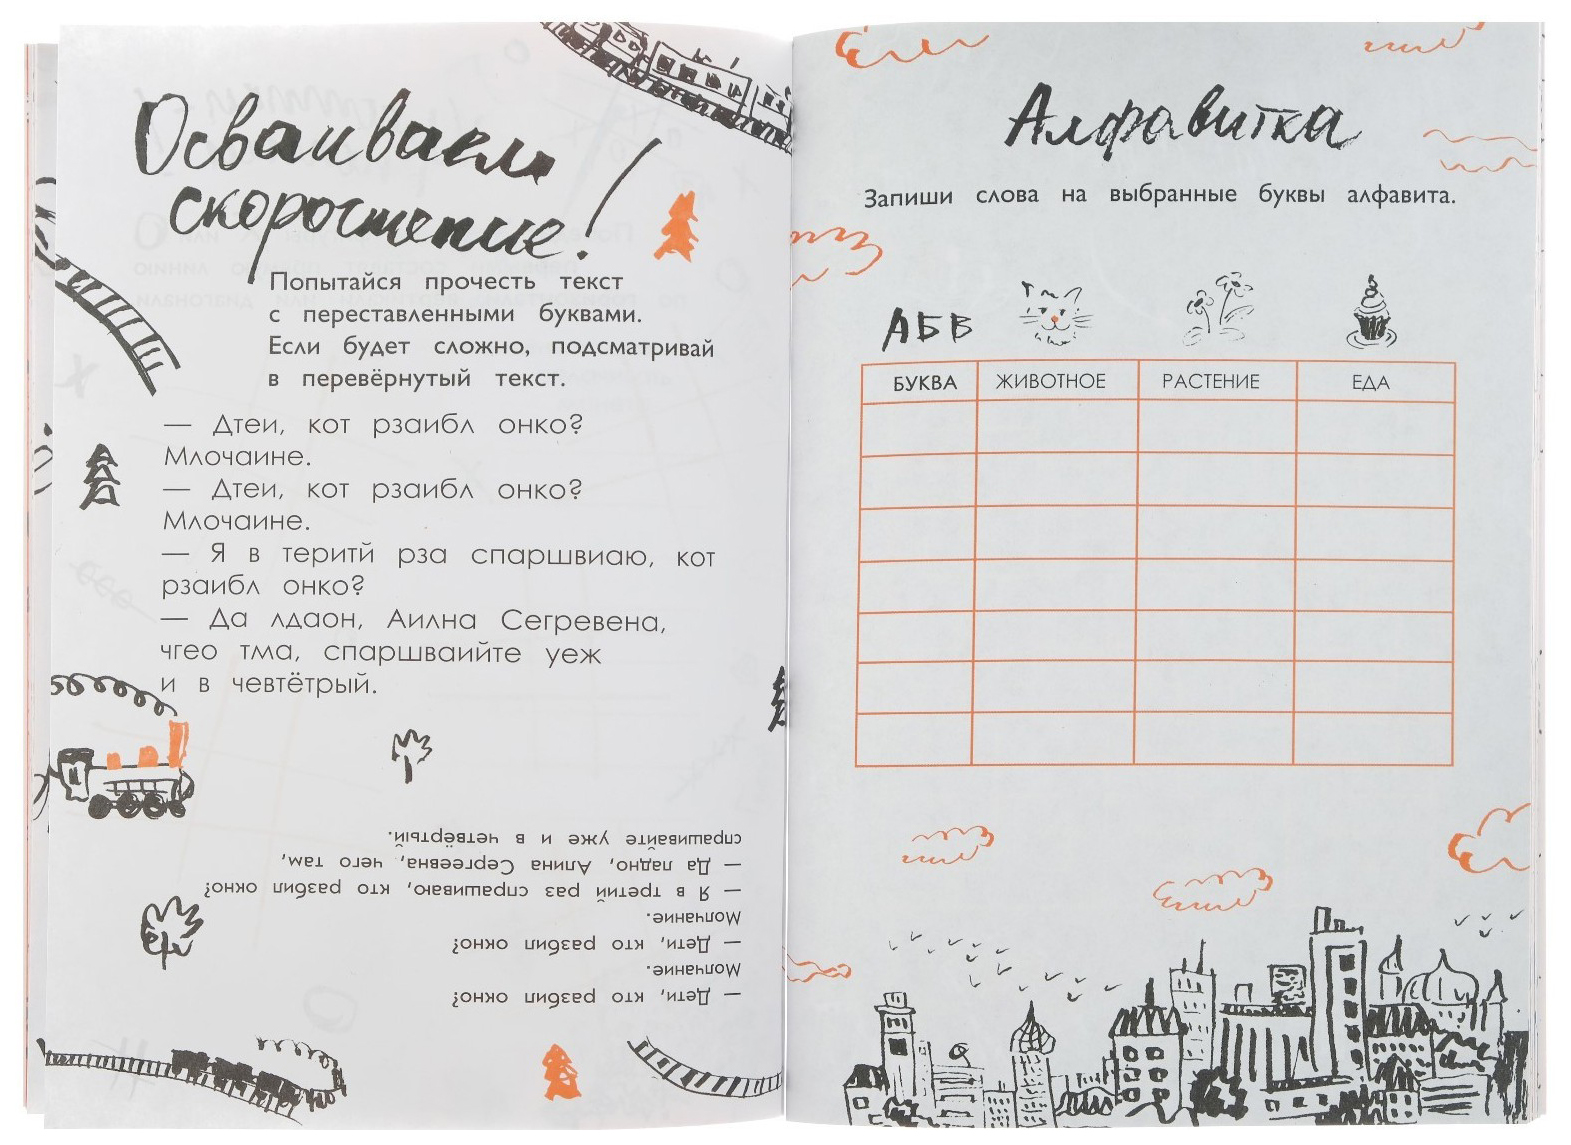 Осваиваем
скорочтение!
Попытайся прочесть текст
с переставленными буквами.
Если будет сложно, подсматривай
в перевёрнутый текст.
— Дтеи, кот рзаибл онко?
Млочаине.
— Дтеи, кот рзаибл онко?
Млочаине.
— Я в теритй рза спаршвиаю, кот
рзаибл онко?
— Да лдаон, Аилна Сегревена,
чгео тма, спаршваийте уеж
и в чевтётрый.
— Дети, кто разбил окно?
Молчание.
— Дети, кто разбил окно?
Молчание.
— Я в третий раз спрашиваю, кто разбил окно?
— Да ладно, Алина Сергеевна, чего там,
спрашивайте уже и в четвёртый.
Алфавитка
Запиши слова на выбранные буквы алфавита.
АБВ
БУКВА ЖИВОТНОЕ РАСТЕНИЕ ЕДА